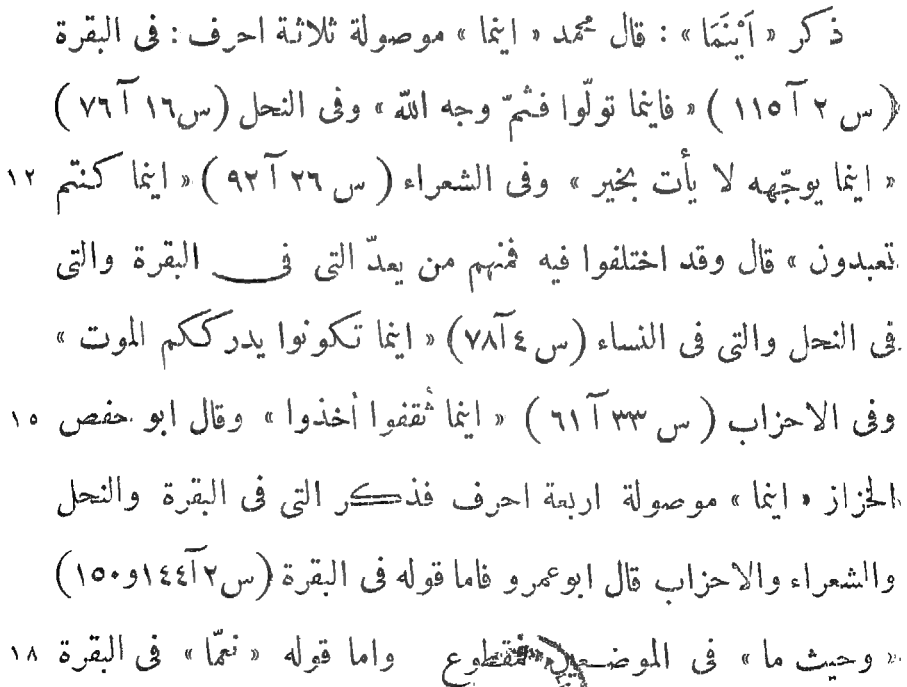 ذكر « اَيْنَمَا » : قال محمد « اينما » موصولة ثلاثة احرف : فى البقرة
( س ٢ آ ١١٥ ) « فاينما تولّوا فثمّ وجه اللّه » وفى النحل ( س١٦ آ ٧٦ )
« اينما يوجّهه لا يأت بخير » وفى الشعراء ( س ٢٦ آ ٩٢ ) « اينما كنتم ١٢
تعبدون » قال وقد اختلفوا فيه فمنهم من يعدّ التى فى البقرة والتى
فى النحل والتى فى النساء ( س ٤ آ ٧٨ ) « اينما تكونوا يدرككم الموت »
وفى الاحزاب ( س ٣٣ آ ٦١ ) « اينما ثُقفوا أخذوا » وقال ابو حفص ١٥
الخزاز « اينما » موصولة اربعة احرف فذكر التى فى البقرة والنحل
والشعراء والاحزاب قال ابو عمرو فاما قوله فى البقرة ( س٢ آ ١٤٤ و ١٥٠ )
« وحيث ما » فى الموضعين فمقطوع واما قوله « نعمّا » فى البقرة ١٨